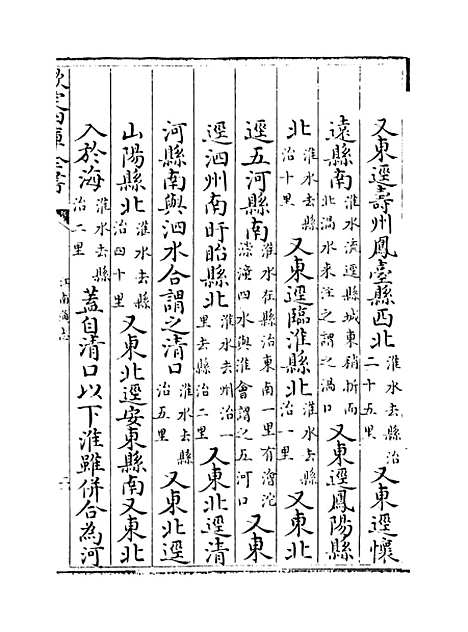 又東逕壽州鳳臺縣西北淮水去縣治二十五里又東逕懷
遠縣南淮水流逕縣城東稍折而北渦水來注之謂之渦口又東逕鳳陽縣
北淮水去縣治十里又東逕臨淮縣北淮水去縣治一里又東北
逕五河縣南淮水在縣治東南一里有澮沱漴潼四水與淮會謂之五河口又東
逕泗州南盱眙縣北淮水去州治一里去縣治二里又東北逕清
河縣南與泗水合謂之清口淮水去縣治五里又東北逕
山陽縣北淮水去縣治四十里又東北逕安東縣南又東北
入於海淮水去縣治二里蓋自清口以下淮雖併合為河
欽定四庫全書
江南通志